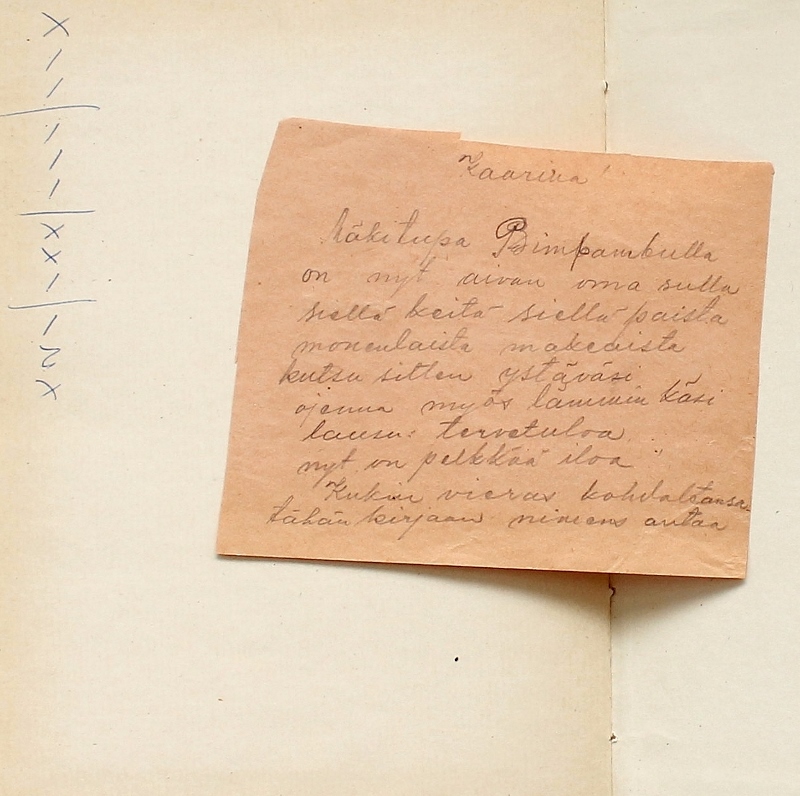 Kaarina!
Näkitupa Bimpambulla
on nyt aivan oma sulla
siellä keitä siellä paista
monenlaista makeaista
kutsu sitten ystäväsi
ojenna myös lämmin käsi
lausu: tervetuloa
nyt on pelkkää iloa!
Kukin vieras kohdaltansa
tähän kirjaan nimens antaa